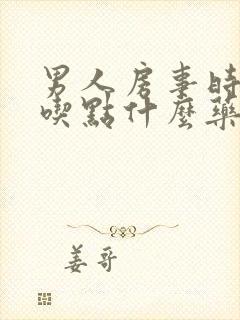 男人房事时
喫點什麽藥
姜哥